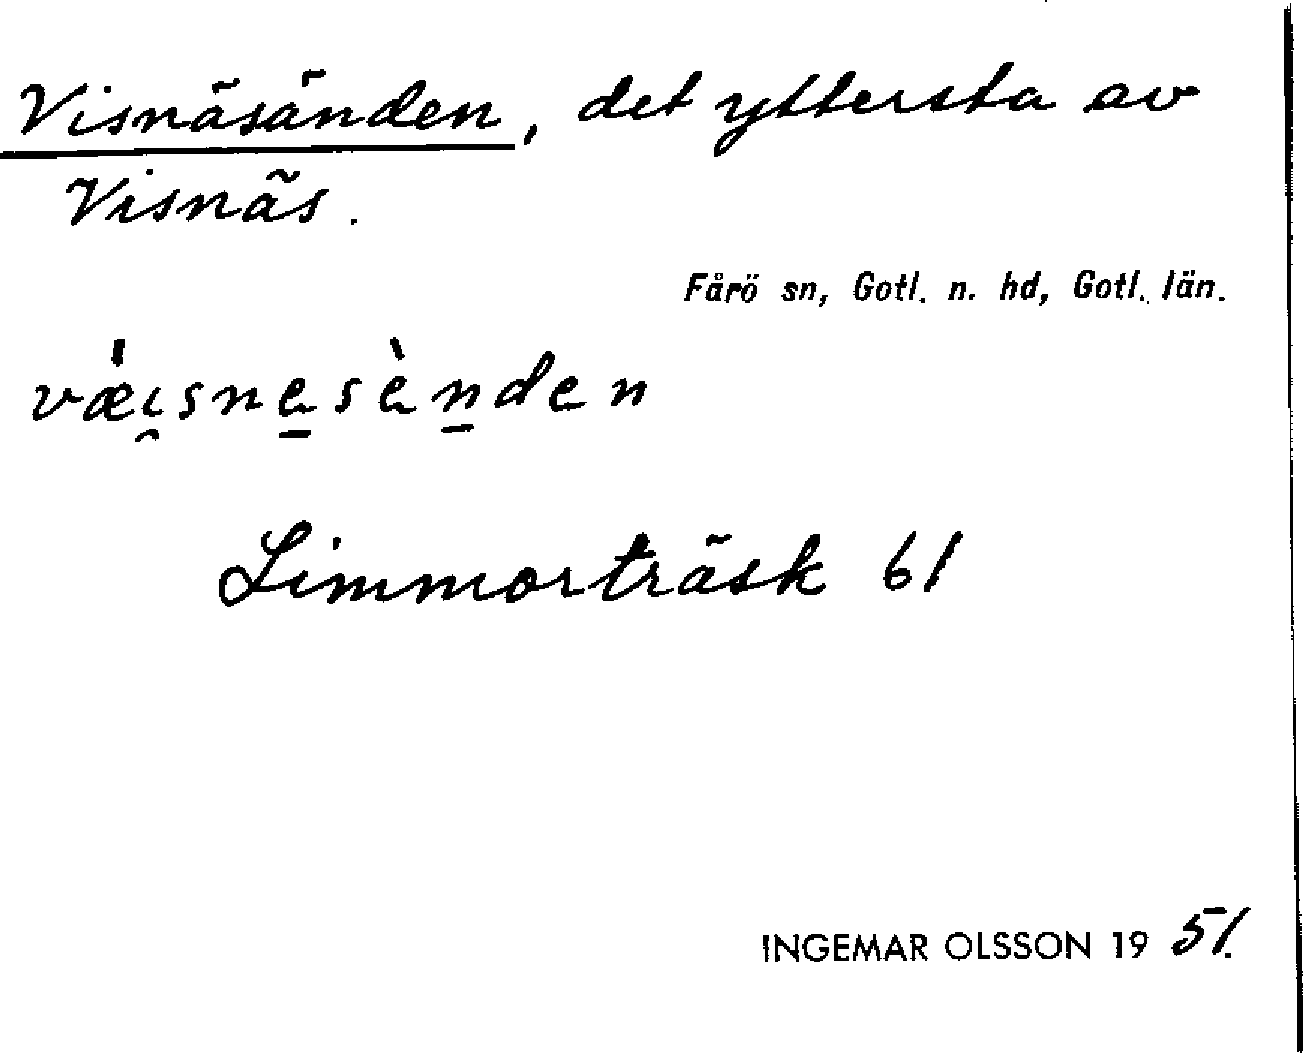 Visnäsänden, det yttersta av
Visnäs.
Fårö sn, Gotl. n. hd, Gotl. län.
væ̀i̯sne̠sèn̠den
Limmorträsk 61
INGEMAR OLSSON 19 51.